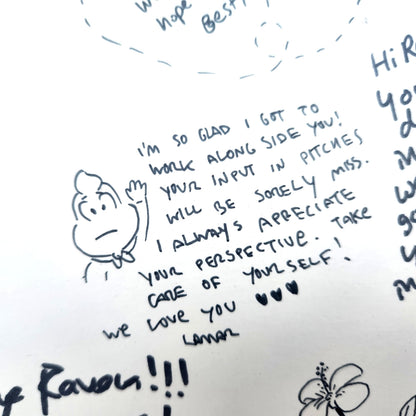 hope
Best
I'M SO GLAD I GOT TO
WORK ALONG SIDE YOU!
YOUR INPUT IN PITCHES
WILL BE SORELY MISS.
I ALWAYS APRECIATE
YOUR PERSPECTIVE. TAKE
CARE OF YOURSELF!
WE LOVE YOU ♥♥♥
LAMAR
Hi R
you
Raven!!!